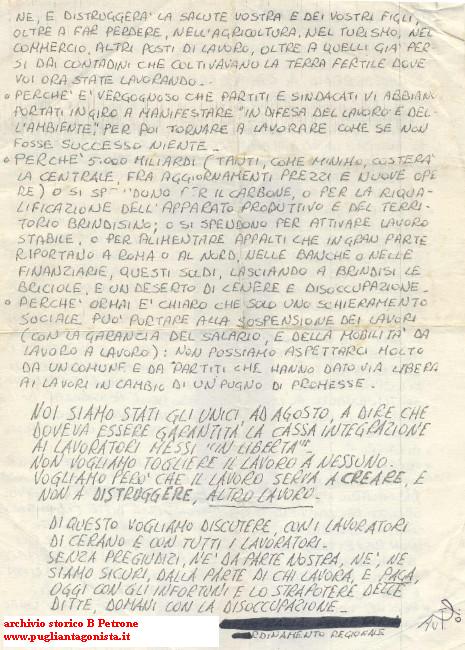 NE, E DISTRUGGERA' LA SALUTE VOSTRA E DEI VOSTRI FIGLI,
OLTRE A FAR PERDERE, NELL'AGRICOLTURA, NEL TURISMO, NEL
COMMERCIO, ALTRI POSTI DI LAVORO, OLTRE A QUELLI GIA' PER-
SI DAI CONTADINI CHE COLTIVAVANO LA TERRA FERTILE DOVE
VOI ORA STATE LAVORANDO...
• PERCHE' E' VERGOGNOSO CHE PARTITI E SINDACATI VI ABBIAN
PORTATI IN GIRO A MANIFESTARE "IN DIFESA DEL LAVORO E DEL-
L'AMBIENTE" PER POI TORNARE A LAVORARE COME SE NON
FOSSE SUCCESSO NIENTE.
• PERCHE' 5.000 MILIARDI (TANTI, COME MINIMO, COSTERA'
LA CENTRALE, FRA AGGIORNAMENTI PREZZI E NUOVE OPE
RE) O SI SP DONO PER IL CARBONE, O PER LA RIQUA-
LIFICAZIONE DELL'APPARATO PRODUTTIVO E DEL TERRI-
TORIO BRINDISINO; O SI SPENDONO PER ATTIVARE LAVORO
STABILE, O PER ALIMENTARE APPALTI CHE IN GRAN PARTE
RIPORTANO A ROMA O AL NORD, NELLE BANCHE O NELLE
FINANZIARIE, QUESTI SOLDI, LASCIANDO A BRINDISI LE
BRICIOLE, E UN DESERTO DI CENERE E DISOCCUPAZIONE.
• PERCHE' ORMAI E' CHIARO CHE SOLO UNO SCHIERAMENTO
SOCIALE PUO' PORTARE ALLA SOSPENSIONE DEI LAVORI
(CON LA GARANZIA DEL SALARIO, E DELLA MOBILITA' DA
LAVORO A LAVORO): NON POSSIAMO ASPETTARCI MOLTO
DA UN COMUNE E DA PARTITI CHE HANNO DATO VIA LIBERA
AI LAVORI IN CAMBIO DI UN PUGNO DI PROMESSE.
NOI SIAMO STATI GLI UNICI, AD AGOSTO, A DIRE CHE
DOVEVA ESSERE GARANTITA LA CASSA INTEGRAZIONE
AI LAVORATORI MESSI "IN LIBERTA'".
NON VOGLIAMO TOGLIERE IL LAVORO A NESSUNO.
VOGLIAMO PERO' CHE IL LAVORO SERVA A CREARE, E
NON A DISTRUGGERE, ALTRO LAVORO.
DI QUESTO VOGLIAMO DISCUTERE, CON I LAVORATORI
DI CERANO E CON TUTTI I LAVORATORI.
SENZA PREGIUDIZI, NE' DA PARTE NOSTRA, NE', NE
SIAMO SICURI, DALLA PARTE DI CHI LAVORA, E PAGA,
OGGI CON GLI INFORTUNI E LO STRAPOTERE DELLE
DITTE, DOMANI CON LA DISOCCUPAZIONE.
RDINAMENTO REGIONALE
archivio storico B Petrone
www.pugliantagonista.it